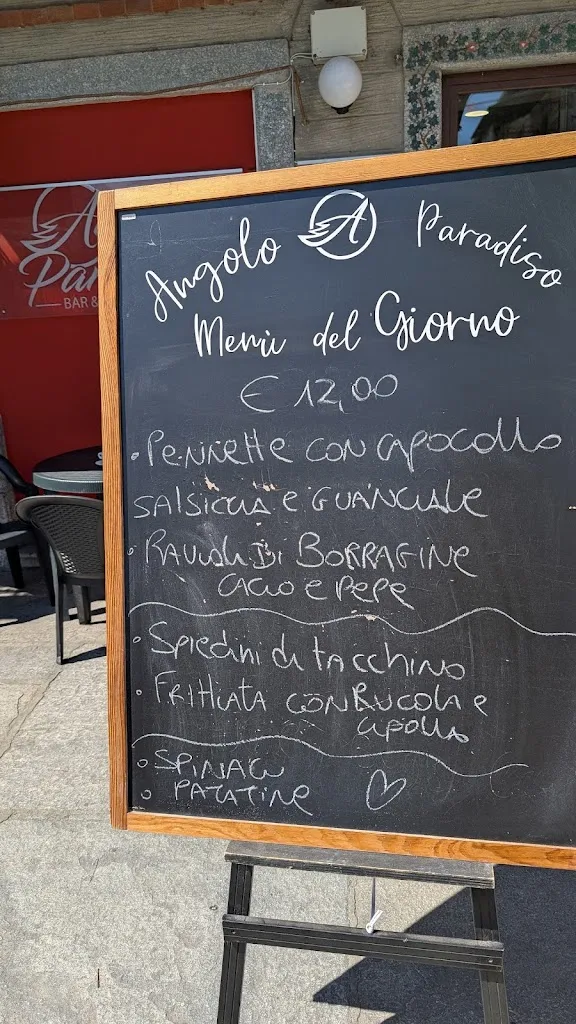 Angolo A Paradiso
Menù del Giorno
€ 12,00
• PENNETTE CON CAPOCOLLO
SALSICCIA E GUANCIALE
• RAVIOLI DI BORRAGINE
CACIO E PEPE
• SPIEDINI di TACCHINO
• FRITTATA CON RUCOLA E
CIPOLLA
• SPINACI
• PATATINE
A
Par
BAR &